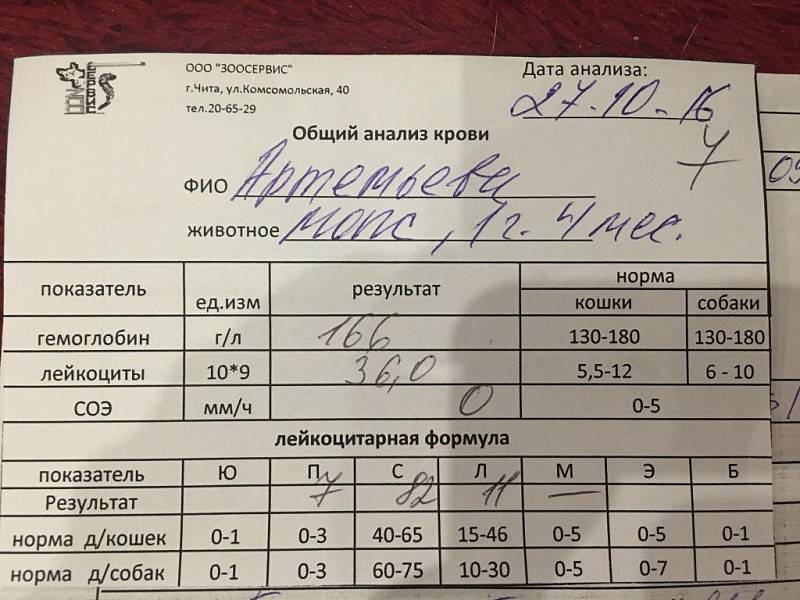 ООО "ЗООСЕРВИС"
г.Чита, ул.Комсомольская, 40
тел.20-65-29
Дата анализа:
27-10-16
7
Общий анализ крови
ФИО Артемьева
животное мопс, 1 г. 4 мес.
показатель ед.изм результат норма
кошки собаки
гемоглобин г/л 166 130-180 130-180
лейкоциты 10*9 36,0 5,5-12 6 - 10
СОЭ мм/ч 0 0-5
лейкоцитарная формула
показатель Ю П С Л М Э Б
Результат 7 82 11 —
норма д/кошек 0-1 0-3 40-65 15-46 0-5 0-5 0-1
норма д/собак 0-1 0-3 60-75 10-30 0-5 0-7 0-1